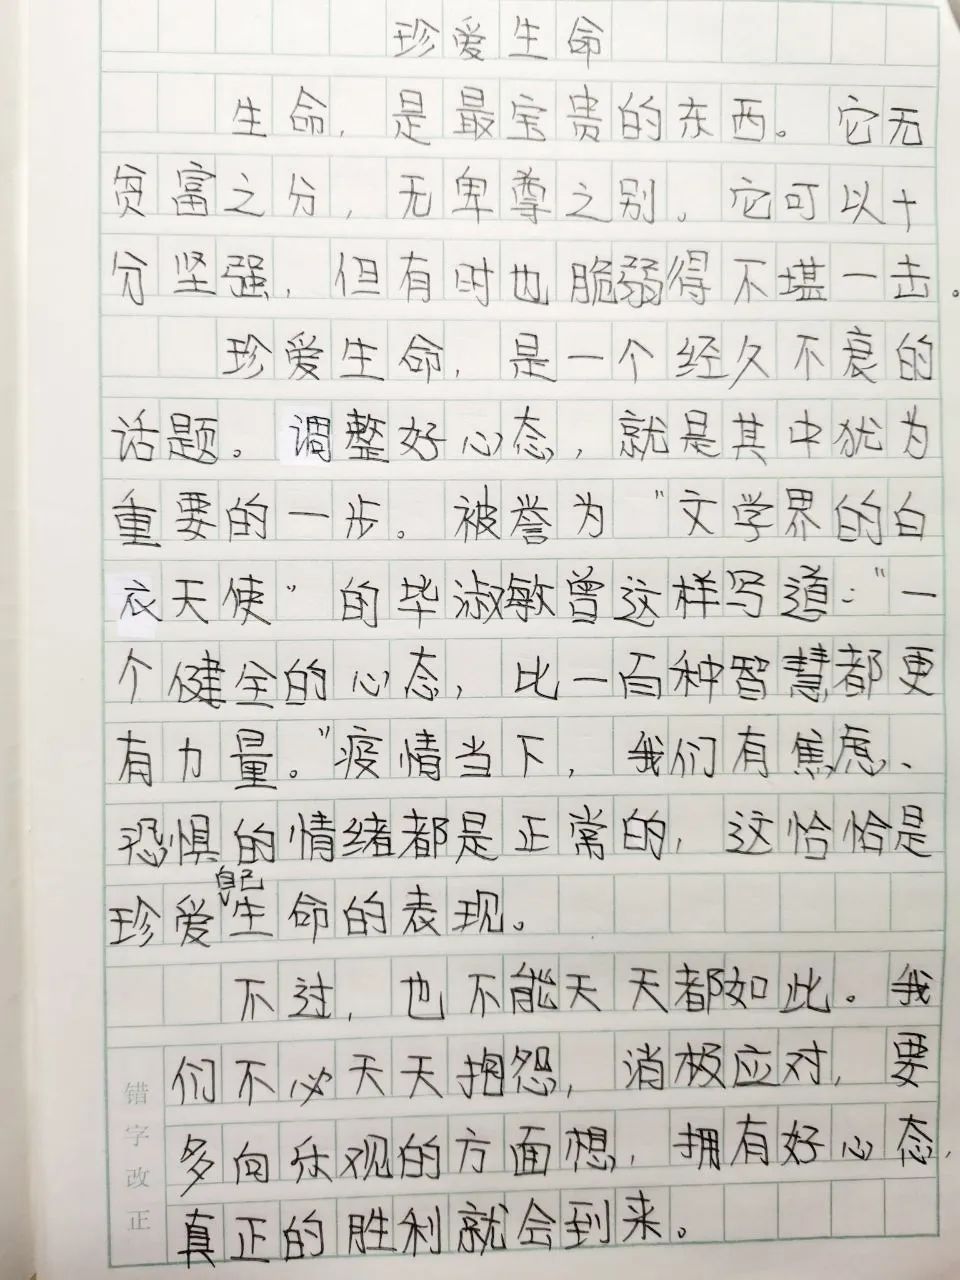 珍爱生命
生命，是最宝贵的东西。它无
贫富之分，无卑尊之别。它可以十
分坚强，但有时也脆弱得不堪一击。
珍爱生命，是一个经久不衰的
话题。调整好心态，就是其中犹为
重要的一步。被誉为“文学界的白
衣天使”的毕淑敏曾这样写道：“一
个健全的心态，比一百种智慧都更
有力量。”疫情当下，我们有焦虑、
恐惧的情绪都是正常的，这恰恰是
珍爱自己生命的表现。
不过，也不能天天都如此。我
们不必天天抱怨，消极应对，要
多向乐观的方面想，拥有好心态，
真正的胜利就会到来。
错字改正